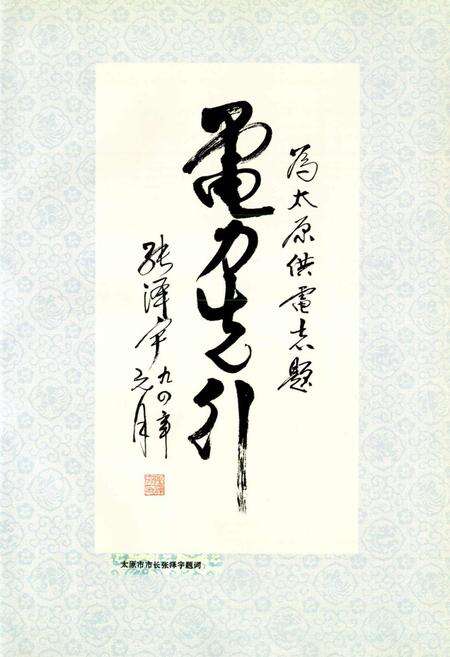 为太原供電志題
電力先行
张泽宇
九四年
元月
太原市市长张泽宇题词